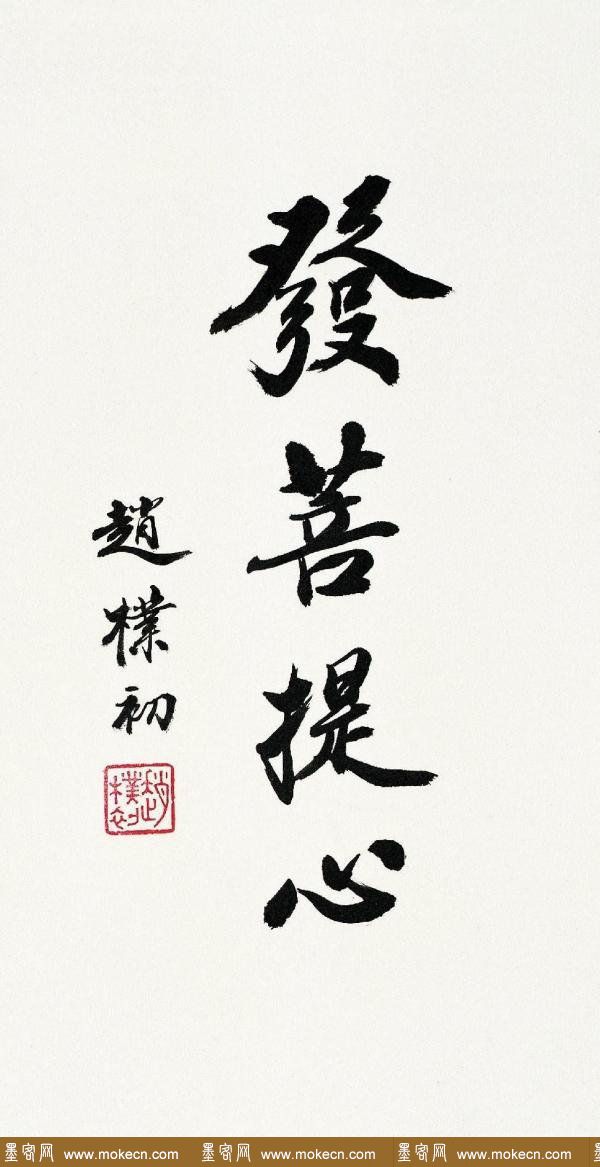 發菩提心
趙樸初
趙樸初
墨客网 www.mokecn.com 墨客网 www.mokecn.com 墨客网 www.mokecn.com